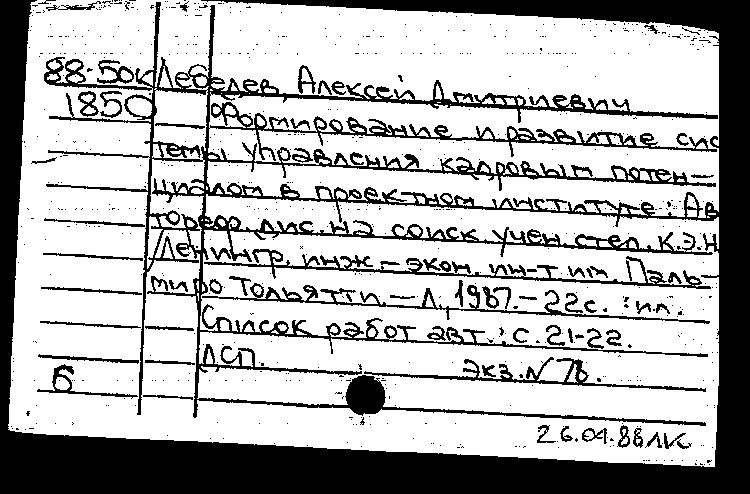 88-50к Лебедев, Алексей Дмитриевич
1850 Формирование и развитие сис
темы управления кадровым потен-
циалом в проектном институте: Ав
тореф. дис. на соиск. учен. степ. к.э.н
/Ленингр. инж.-экон. ин-т им. Паль-
миро Тольятти.-Л., 1987.-22с.:ил.
Список работ авт.: с. 21-22.
ДСП. Экз. N 78.
Б
26.04.88